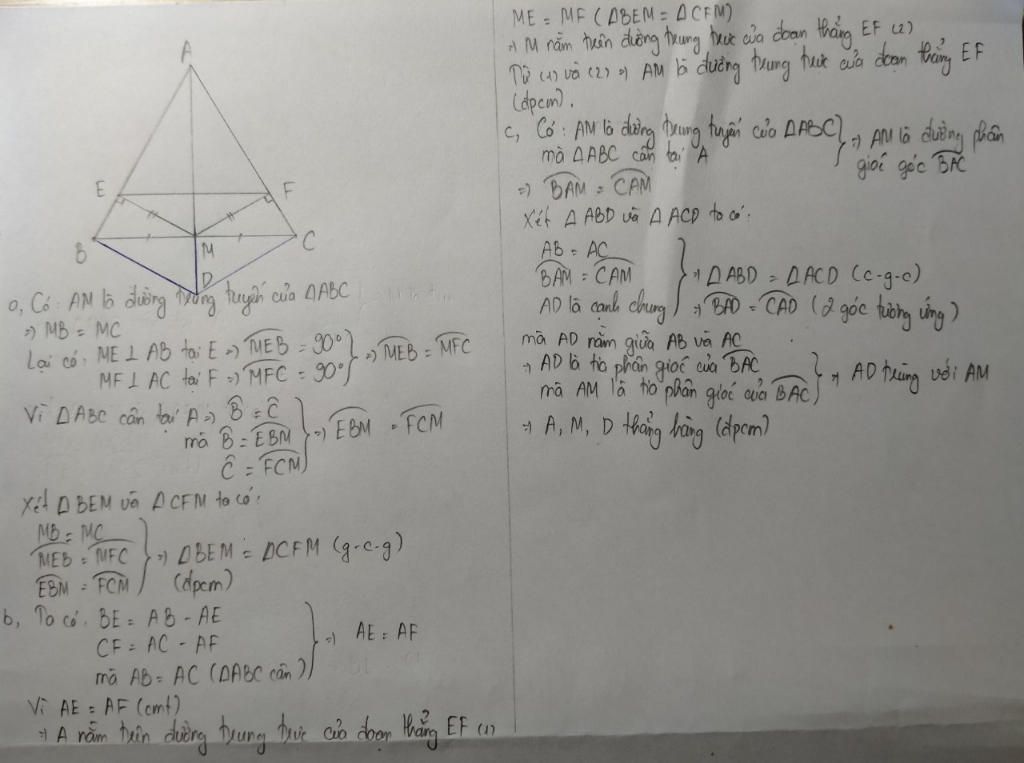 A
E
F
B
M
C
D
a, Có: AM là đường trung tuyến của ΔABC
=> MB = MC
Lại có: ME ⊥ AB tại E => MEB = 90°
MF ⊥ AC tại F => MFC = 90°
=> MEB = MFC
Vì ΔABC cân tại A => B = C
mà B = EBM
C = FCM
=> EBM = FCM
Xét ΔBEM và ΔCFM ta có:
MB = MC
MEB = MFC
EBM = FCM
=> ΔBEM = ΔCFM (g-c-g)
(đpcm)
b, Ta có: BE = AB - AE
CF = AC - AF
mà AB = AC (ΔABC cân)
=> AE = AF
Vì AE = AF (cmt)
=> A nằm trên đường trung trực của đoạn thẳng EF (1)
ME = MF (ΔBEM = ΔCFM)
=> M nằm trên đường trung trực của đoạn thẳng EF (2)
Từ (1) và (2) => AM là đường trung trực của đoạn thẳng EF
(đpcm).
c, Có: AM là đường trung tuyến của ΔABC
mà ΔABC cân tại A
=> AM là đường phân
giác góc BAC
=> BAM = CAM
Xét ΔABD và ΔACD ta có:
AB = AC
BAM = CAM
AD là cạnh chung
=> ΔABD = ΔACD (c-g-c)
=> BAD = CAD (2 góc tương ứng)
mà AD nằm giữa AB và AC
=> AD là tia phân giác của BAC
mà AM là tia phân giác của BAC
=> AD trùng với AM
=> A, M, D thẳng hàng (đpcm)